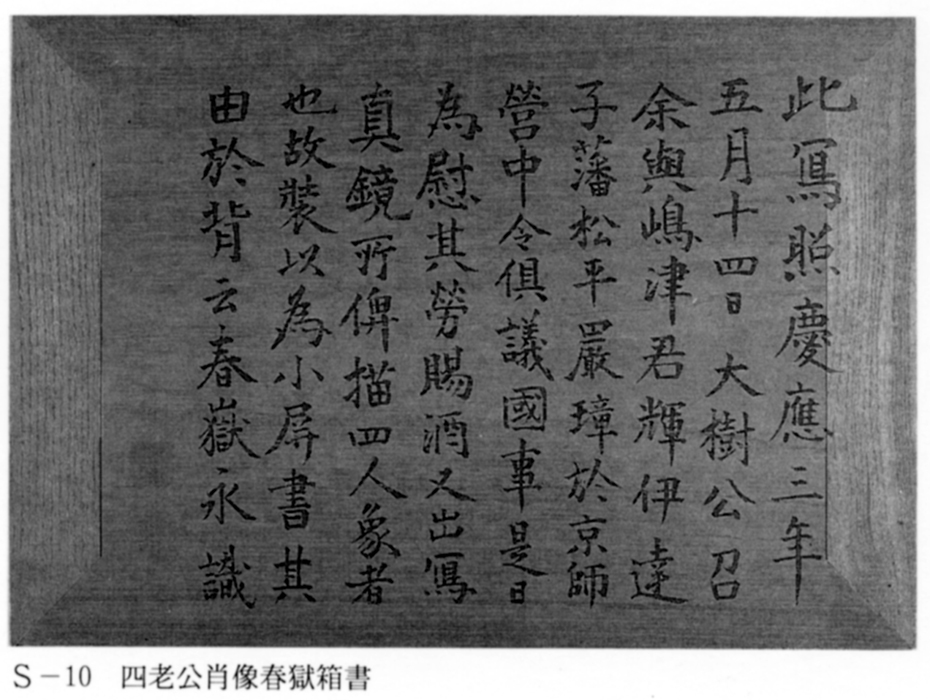 此寫照慶應三年
五月十四日 大樹公召
余與嶋津君輝伊達
子藩松平嚴璋於京師
營中令俱議國事是日
為慰其勞賜酒又出寫
真鏡所俾描四人象者
也故裝以為小屏書其
由於背云春嶽永識
S－10 四老公肖像春獄箱書